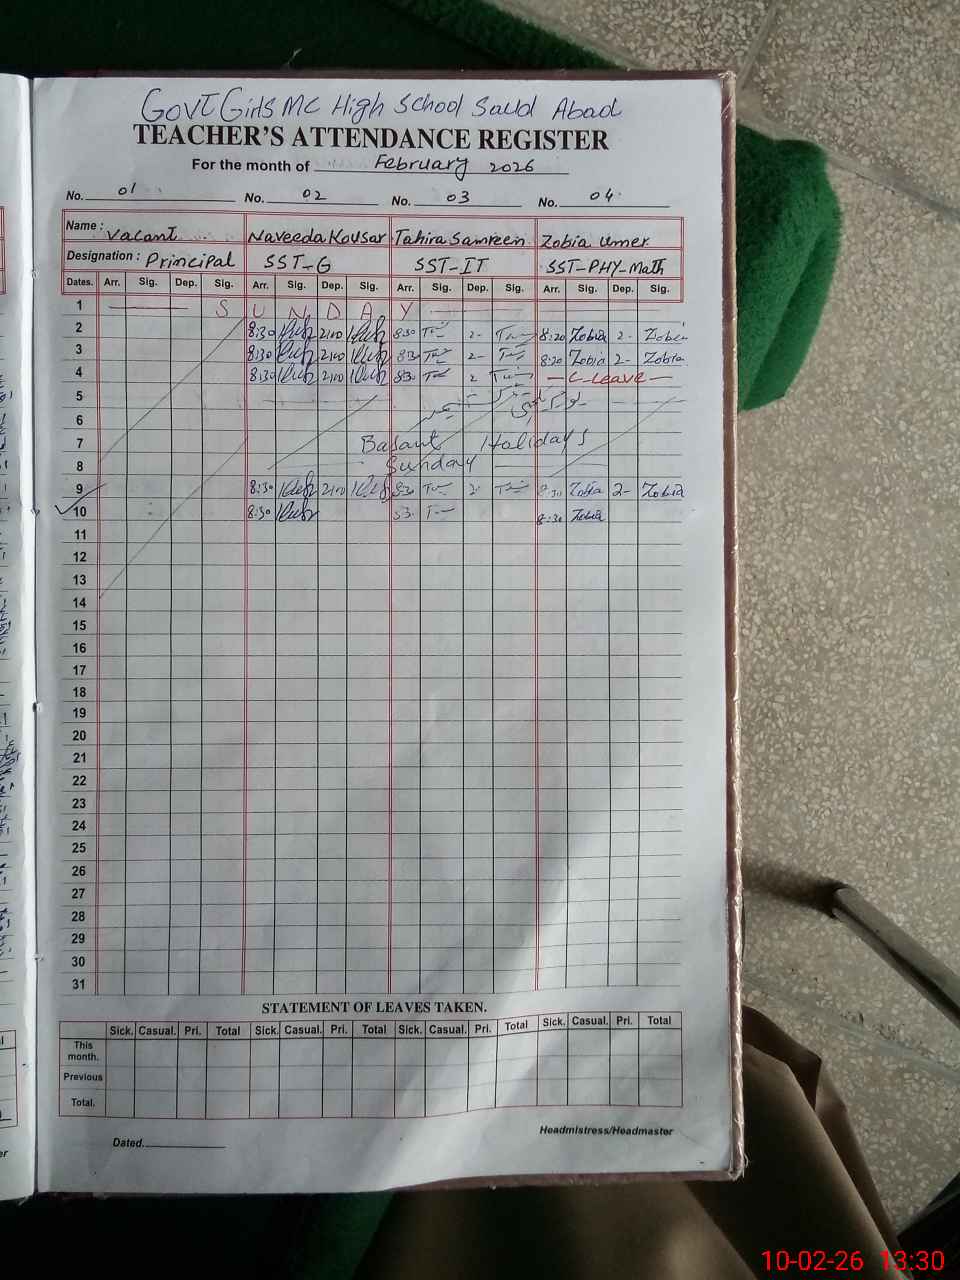 GOVT Girls MC High School Saud Abad
TEACHER'S ATTENDANCE REGISTER
For the month of February 2026
No. 01 No. 02 No. 03 No. 04
Name : Vacant Naveeda Kousar Tahira Samreen Zobia Umer
Designation : Principal SST-G SST-IT SST-PHY-Math
Dates. Arr. Sig. Dep. Sig. Arr. Sig. Dep. Sig. Arr. Sig. Dep. Sig. Arr. Sig. Dep. Sig.
1 S U N D A Y
2 8:30 2:00 8:30 2- 8:20 Zobia 2- Zobia
3 8:30 2:00 8:30 2- 8:20 Zobia 2- Zobia
4 8:30 2:00 8:30 2 C-Leave
5
6
7 Basant Holidays
8 Sunday
9 8:30 2:00 8:30 2- 8:30 Zobia 2- Zobia
10 8:30 8:30 Zobia
11
12
13
14
15
16
17
18
19
20
21
22
23
24
25
26
27
28
29
30
31
STATEMENT OF LEAVES TAKEN.
Sick. Casual. Pri. Total Sick. Casual. Pri. Total Sick. Casual. Pri. Total Sick. Casual. Pri. Total
This month.
Previous
Total.
Headmistress/Headmaster
Dated.
10-02-26 13:30